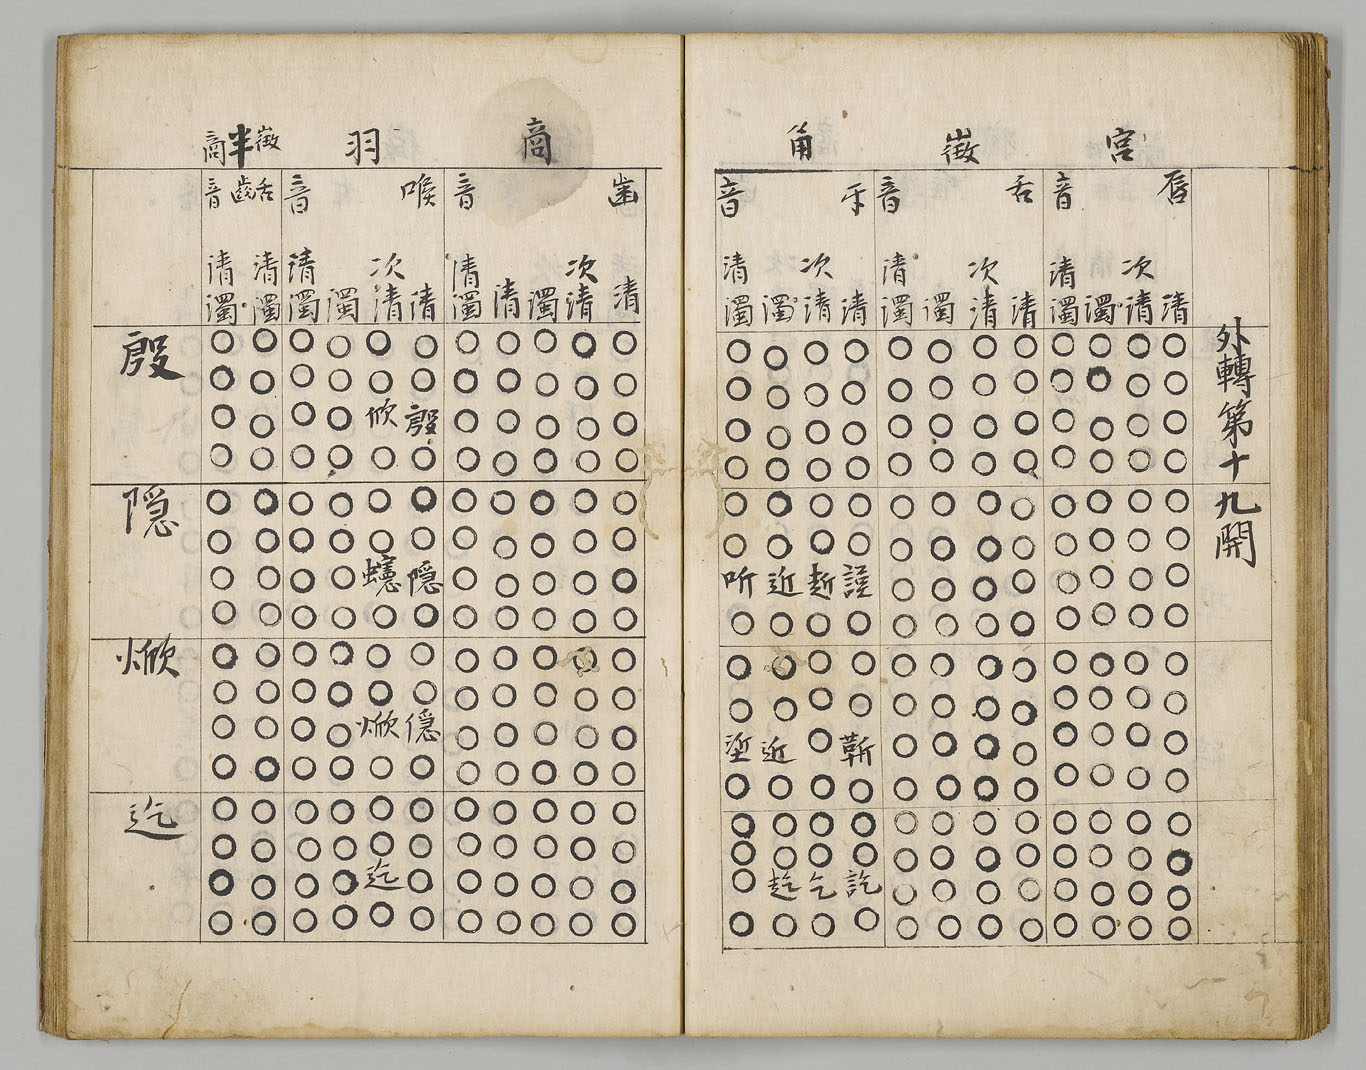 外轉第十九開
宮 徵 角 商 羽 徵半商
唇音 舌音 牙音 齒音 喉音 舌齒音
清 次清 濁 清濁 清 次清 濁 清濁 清 次清 濁 清濁 清 次清 濁 清 清濁 清 次清 濁 清濁 清濁 清濁
殷 欣 殷
謹 赾 近 听 隠 隠
靳 近 垽 㒚 焮 焮
訖 乞 迄 迄